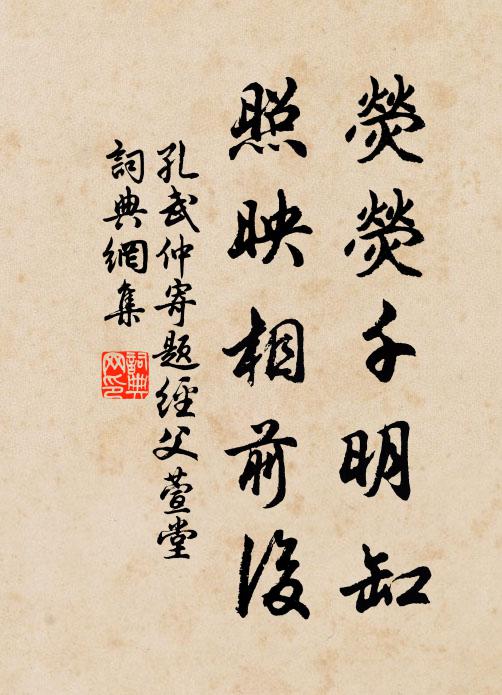 熒熒千明缸
照映相前後
孔武仲寄題經父萱堂
詞典網集
詞典
网印